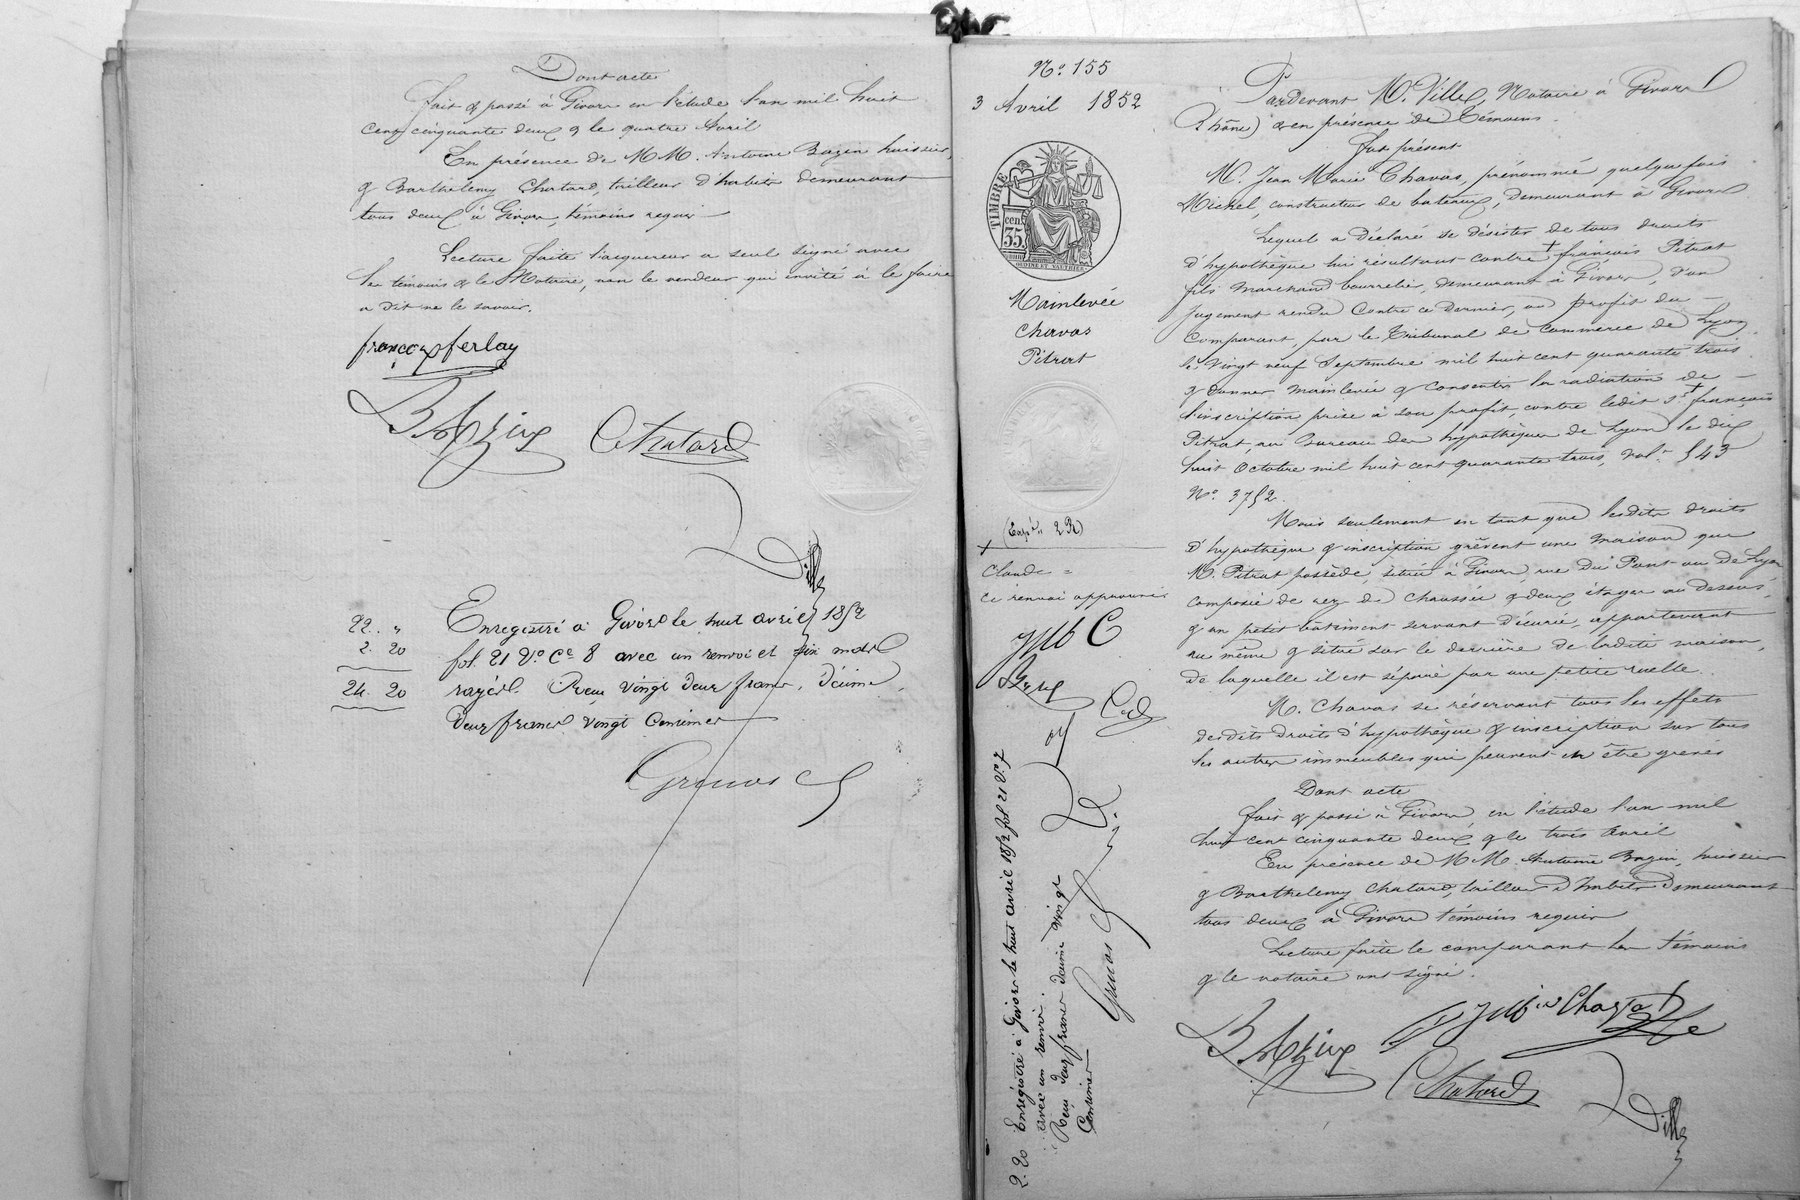 Dont acte
Fait & passé à Givors en l'étude l'an mil huit
cent cinquante deux & le quatre Avril
En présence de M.M. Antoine Bazin huissier,
& Barthelemy Chatard, tailleur d'habits demeurant
tous deux à Givors, témoins requis
Lecture faite l'acquereur a seul signé avec
les témoins & le Notaire, non le vendeur qui invité à le faire
a dit ne le savoir.
françois ferlay
BAzin Chatard
Ville
22 . "
2. 20
24. 20
Enregistré à Givors le huit avril 1852
fol. 21 V° Ce 8 avec un renvoi et six mots
rayés. Reçu vingt deux francs, décime
deux francs vingt centimes
N° 155
3 Avril 1852
TIMBRE
cen.
35
Mainlevée
Chavas
Pitrat
(Exp. 2 R)
+
Claude =
ce renvoi approuvé
JMC
2. 20 Enregistré à Givors le huit avril 1852 fol 21 V° 7
avec un renvoi.
Reçu deux francs décime vingt
Centimes
Pardevant M. Ville, Notaire à Givors
(Rhône) & en présence de témoins
Fut présent
M. Jean Marie Chavas, prénommé quelquefois
Michel, constructeur de bateaux, demeurant à Givors
Lequel a déclaré se désister de tous droits
d'hypothèque lui résultant contre + françois Pitrat
fils Marchand bourrelier, demeurant à Givors, d'un
jugement rendu contre ce dernier, au profit du
comparant, par le Tribunal de commerce de Lyon,
le vingt neuf Septembre mil huit cent quarante trois
& donner mainlevée & consentir la radiation de
l'inscription prise à son profit, contre ledit Sr + françois
Pitrat, au Bureau des hypothèques de Lyon le dix
huit Octobre mil huit cent quarante trois, vol. 543
N° 3752.
Mais seulement en tant que lesdits droits
d'hypothèque & inscription grèvent une maison que
M. Pitrat possède, située à Givors, rue du Pont ou de Lyon
composée de rez de chaussée & deux étages au dessus,
& un petit bâtiment servant d'écurie, appartenant
au même & situé sur le derrière de ladite maison,
de laquelle il est séparé par une petite ruelle.
M. Chavas se réservant tous les effets
desdits droits d'hypothèque & inscription sur tous
les autres immeubles qui peuvent en être grevés
Dont acte
Fait & passé à Givors en l'étude l'an mil
huit cent cinquante deux & le trois Avril
En présence de M.M. Antoine Bazin, huissier
& Barthelemy Chatard, tailleur d'habits demeurant
tous deux à Givors témoins requis
Lecture faite le comparant les témoins
& le notaire ont signé.
BAzin Chatard
Ville